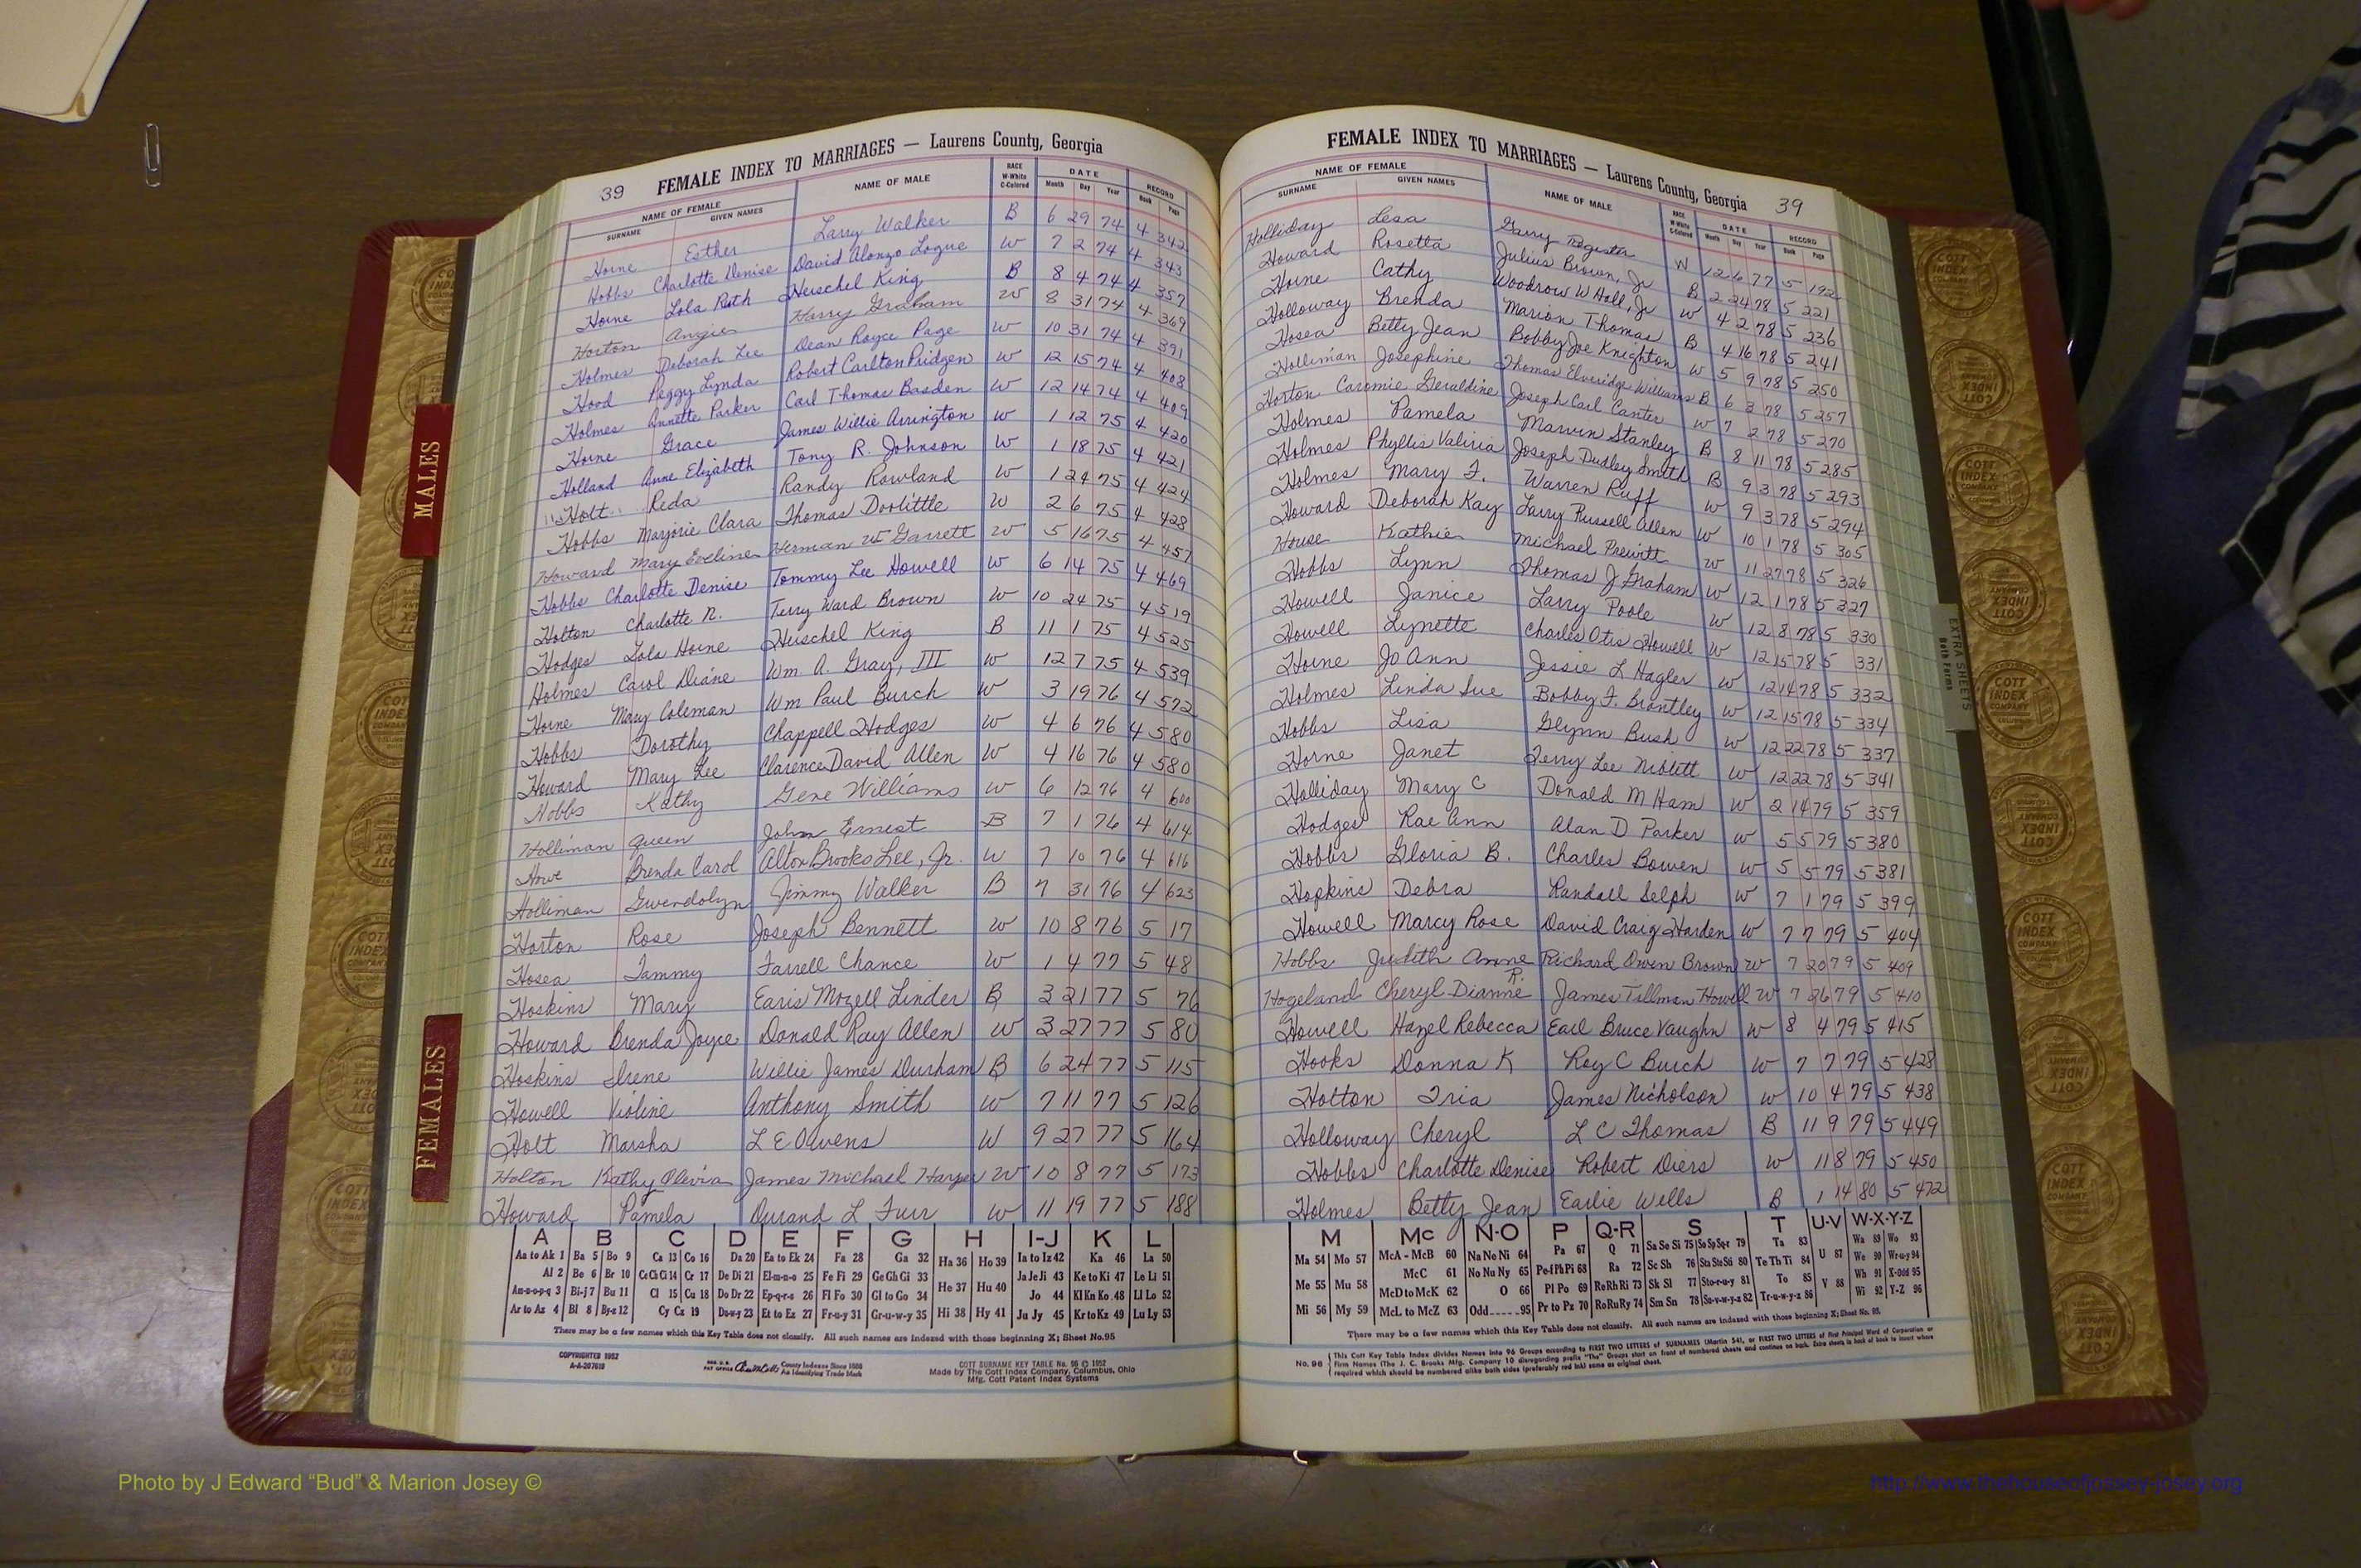 39 FEMALE INDEX TO MARRIAGES — Laurens County, Georgia
NAME OF FEMALE NAME OF MALE RACE W-White C-Colored DATE RECORD
SURNAME GIVEN NAMES Month Day Year Book Page
Horne Esther Larry Walker B 6 29 74 4 342
Hobbs Charlotte Denise David Alonzo Logue W 7 2 74 4 343
Horne Lola Ruth Herschel King B 8 4 74 4 357
Horton Angie Harry Graham W 8 31 74 4 369
Holmes Deborah Lee Dean Royce Page W 10 31 74 4 391
Hood Peggy Lynda Robert Carlton Pridgen W 12 15 74 4 408
Holmes Annette Parker Carl Thomas Basden W 12 14 74 4 409
Horne Grace James Willie Arrington W 1 12 75 4 420
Holland Anne Elizabeth Tony R. Johnson W 1 18 75 4 421
Holt Reda Randy Rowland W 1 24 75 4 424
Hobbs Marjorie Clara Thomas Doolittle W 2 6 75 4 428
Howard Mary Eveline Herman W Garrett W 5 16 75 4 457
Hobbs Charlotte Denise Tommy Lee Howell W 6 14 75 4 469
Holton Charlotte N. Terry Ward Brown W 10 24 75 4 519
Hodges Lola Horne Herschel King B 11 1 75 4 525
Holmes Carol Diane Wm. A. Gray, III W 12 7 75 4 539
Horne Mary Coleman Wm Paul Burch W 3 19 76 4 572
Hobbs Dorothy Chappell Hodges W 4 6 76 4 580
Howard Mary Lee Clarence David Allen W 4 16 76 4 580
Hobbs Kathy Gene Williams W 6 12 76 4 600
Holliman Queen John Ernest B 7 1 76 4 614
Howe Brenda Carol Alton Brooks Lee, Jr. W 7 10 76 4 616
Holliman Gwendolyn Jimmy Walker B 7 31 76 4 623
Horton Rose Joseph Bennett W 10 8 76 5 17
Hosea Tammy Farrell Chance W 1 4 77 5 48
Hoskins Mary Earis Mozell Linder B 3 21 77 5 76
Howard Brenda Joyce Donald Ray Allen W 3 27 77 5 80
Hoskins Irene Willie James Durham B 6 24 77 5 115
Howell Violine Anthony Smith W 7 11 77 5 126
Holt Marsha L E Owens W 9 27 77 5 164
Holton Kathy Olevia James Michael Harper W 10 8 77 5 173
Howard Pamela Durand L Furr W 11 19 77 5 188
A B C D E F G H I-J K L
Aa to Ak 1 Ba 5 Bo 9 Ca 13 Co 16 Da 20 Ea to Ek 24 Fa 28 Ga 32 Ha 36 Ho 39 Ia to Iz 42 Ka 46 La 50
Al 2 Be 6 Br 10 Ce Ch Ci 14 Cr 17 De Di 21 El-m-n-o 25 Fe Fi 29 Ge Gh Gi 33 He 37 Hu 40 Ja Je Ji 43 Ke to Ki 47 Le Li 51
Am-n-o-p-q 3 Bi-j 7 Bu 11 Cl 15 Cu 18 Do Dr 22 Ep-q-r-s 26 Fl Fo 30 Gl to Go 34 Jo 44 Kl Kn Ko 48 Ll Lo 52
Ar to Az 4 Bl 8 By-z 12 Cy Cz 19 Du-w-y 23 Et to Ez 27 Fr-u-y 31 Gr-u-w-y 35 Hi 38 Hy 41 Ju Jy 45 Kr to Kz 49 Lu Ly 53
There may be a few names which this Key Table does not classify. All such names are indexed with those beginning X; Sheet No. 95
COPYRIGHTED 1952
A-A-207619
REG. U.S. PAT OFFICE County Indexes Since 1888 An Identifying Trade Mark
COTT SURNAME KEY TABLE No. 96 © 1952
Made by The Cott Index Company, Columbus, Ohio
Mfg. Cott Patent Index Systems
FEMALE INDEX TO MARRIAGES — Laurens County, Georgia 39
NAME OF FEMALE NAME OF MALE RACE W-White C-Colored DATE RECORD
SURNAME GIVEN NAMES Month Day Year Book Page
Holliday Lesa Garry Register W 12 6 77 5 192
Howard Rosetta Julius Brown, Jr B 2 24 78 5 221
Horne Cathy Woodrow W Hall, Jr W 4 2 78 5 236
Holloway Brenda Marion Thomas B 4 16 78 5 241
Hosea Betty Jean Bobby Joe Knighton W 5 9 78 5 250
Holliman Josephine Thomas Elveridge Williams B 6 3 78 5 257
Horton Caromie Geraldine Joseph Carl Canter W 7 2 78 5 270
Holmes Pamela Marvin Stanley B 8 11 78 5 285
Holmes Phyllis Valiria Joseph Dudley Smith B 9 3 78 5 293
Holmes Mary F. Warren Ruff W 9 3 78 5 294
Howard Deborah Kay Larry Russell Allen W 10 1 78 5 305
House Kathie Michael Prewitt W 11 27 78 5 326
Hobbs Lynn Thomas J Graham W 12 1 78 5 327
Howell Janice Larry Poole W 12 8 78 5 330
Howell Lynette Charles Otis Howell W 12 15 78 5 331
Horne Jo Ann Jessie L Hagler W 12 14 78 5 332
Holmes Linda Sue Bobby F. Brantley W 12 15 78 5 334
Hobbs Lisa Glynn Bush W 12 22 78 5 337
Horne Janet Terry Lee Niblett W 12 22 78 5 341
Holliday Mary C Donald M Ham W 2 14 79 5 359
Hodges Rae Ann Alan D Parker W 5 5 79 5 380
Hobbs Gloria B. Charles Bowen W 5 5 79 5 381
Hopkins Debra Randall Selph W 7 1 79 5 399
Howell Marcy Rose David Craig Harden W 7 7 79 5 404
Hobbs Judith Anne Richard Owen Brown W 7 20 79 5 409
Hogeland Cheryl Dianne R. James Tillman Howell W 7 26 79 5 410
Howell Hazel Rebecca Earl Bruce Vaughn W 8 4 79 5 415
Hooks Donna K Roy C Burch W 7 7 79 5 428
Holton Tria James Nicholson W 10 4 79 5 438
Holloway Cheryl L C Thomas B 11 9 79 5 449
Hobbs Charlotte Denise Robert Diers W 11 8 79 5 450
Holmes Betty Jean Earlie Wells B 1 14 80 5 472
M Mc N-O P Q-R S T U-V W-X-Y-Z
Ma 54 Mo 57 McA - McB 60 Na Ne Ni 64 Pa 67 Q 71 Sa Se Si 75 So Sp Sq-r 79 Ta 83 U 87 Wa 89 Wo 93
Me 55 Mu 58 McC 61 No Nu Ny 65 Pe-f Ph Pi 68 Ra 72 Sc Sh 76 Sta Ste Sti 80 Te Th Ti 84 We 90 Wr-u-y 94
McD to McK 62 O 66 Pl Po 69 Re Rh Ri 73 Sk Sl 77 Sto-r-u-y 81 To 85 V 88 Wh 91 X-Odd 95
Mi 56 My 59 McL to McZ 63 Odd-----95 Pr to Pz 70 Ro Ru Ry 74 Sm Sn 78 Su-v-w-y-z 82 Tr-u-w-y-z 86 Wi 92 Y-Z 96
There may be a few names which this Key Table does not classify. All such names are indexed with those beginning X; Sheet No. 95.
No. 96 This Cott Key Table Index divides Names into 96 Groups according to FIRST TWO LETTERS of SURNAMES (Martin 54), or FIRST TWO LETTERS of First Principal Word of Corporation or
Firm Names (The J. C. Brooks Mfg. Company 10 disregarding prefix "The" Groups start on front of numbered sheets and continue on back. Extra sheets in back of book to insert where
required which should be numbered alike both sides (preferably red ink) same as original sheet.
MALES
FEMALES
EXTRA SHEETS
Both Forms
COTT INDEX COMPANY
Photo by J Edward “Bud” & Marion Josey ©
http://www.thehouseofjossey-josey.org